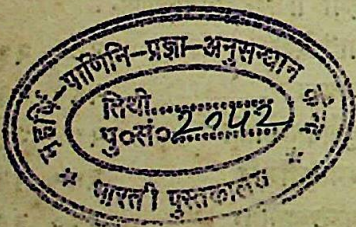 महर्षि-पाणिनि-प्रज्ञा-अनुसन्धान केन्द्र
तिथी..................
पु०सं० 2042
* भारती पुस्तकालय *